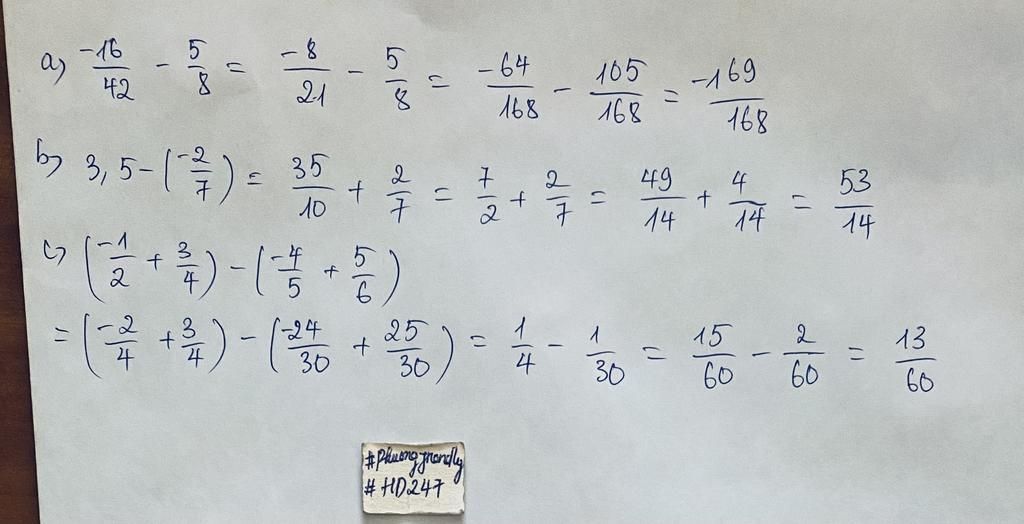 a) -16/42 - 5/8 = -8/21 - 5/8 = -64/168 - 105/168 = -169/168
b) 3,5 - (-2/7) = 35/10 + 2/7 = 7/2 + 2/7 = 49/14 + 4/14 = 53/14
c) (-1/2 + 3/4) - (-4/5 + 5/6)
= (-2/4 + 3/4) - (-24/30 + 25/30) = 1/4 - 1/30 = 15/60 - 2/60 = 13/60
#HD247